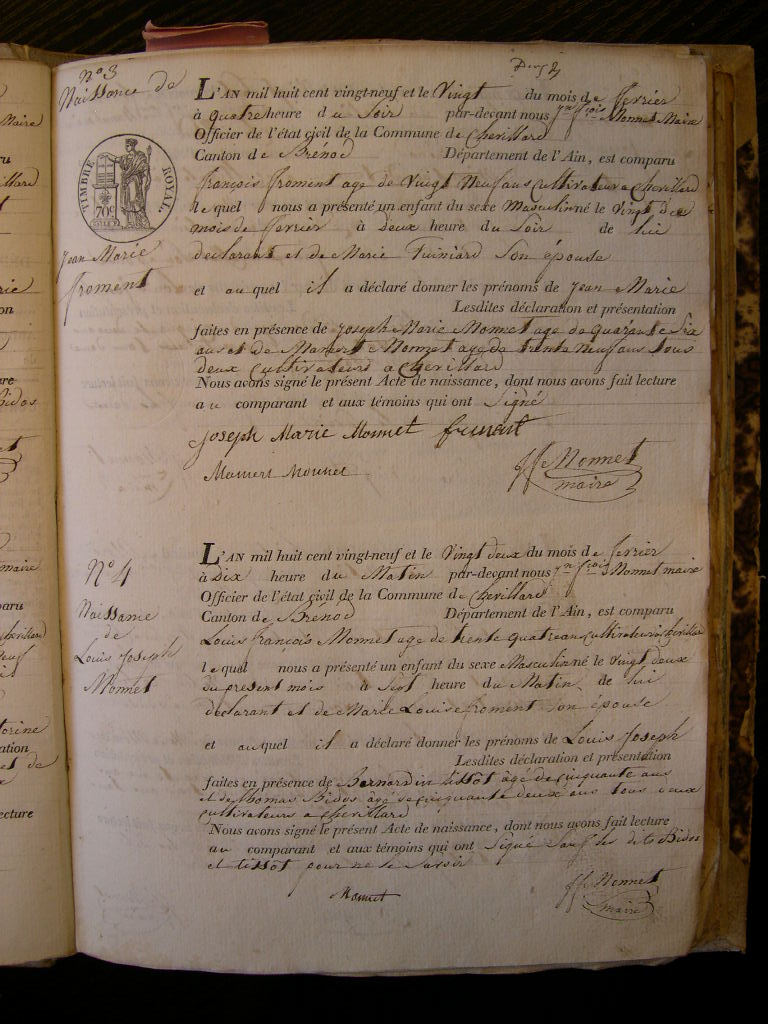 Nº 3
Naissance de
TIMBRE ROYAL
709
Jean Marie
froment
L'AN mil huit cent vingt-neuf et le Vingt du mois de fevrier
à quatre heure du Soir par-devant nous jn fçois Monnet Maire
Officier de l'état civil de la Commune de Chevillard
Canton de Brénod Département de l'Ain, est comparu
françois froment age de Vingt Neuf ans Cultivateur a Chevillard
lequel nous a présenté un enfant du sexe Masculin né le Vingt du
mois de fevrier à Deux heure du Soir de lui
declarant et de Marie son épouse
et auquel il a déclaré donner les prénoms de Jean Marie
Lesdites déclaration et présentation
faites en présence de Joseph Marie Monnet age de quarante Six
ans et de Mamert Monnet age de trente Neuf ans tous
deux Cultivateurs a Chevillard
Nous avons signé le présent Acte de naissance, dont nous avons fait lecture
au comparant et aux témoins qui ont Signé
Joseph Marie Monnet froment
Mamert Monnet
Monnet
maire
Nº 4
Naissance
de
Louis Joseph
Monnet
L'AN mil huit cent vingt-neuf et le Vingt deux du mois de fevrier
à Dix heure du Matin par-devant nous jn fçois Monnet maire
Officier de l'état civil de la Commune de Chevillard
Canton de Brénod Département de l'Ain, est comparu
Louis françois Monnet age de trente quatre ans Cultivateur a Chevillard
lequel nous a présenté un enfant du sexe Masculin né le Vingt deux
du present mois à Sept heure du Matin de lui
declarant et de Marie Louise froment son épouse
et auquel il a déclaré donner les prénoms de Louis Joseph
Lesdites déclaration et présentation
faites en présence de Bernardin tissot âgé de cinquante ans
et de thomas Bidos âgé de cinquante deux ans tous deux
cultivateurs a chevillard
Nous avons signé le présent Acte de naissance, dont nous avons fait lecture
au comparant et aux témoins qui ont Signé Sauf les dits Bidos
et tissot pour ne le Savoir
Monnet
Monnet
maire